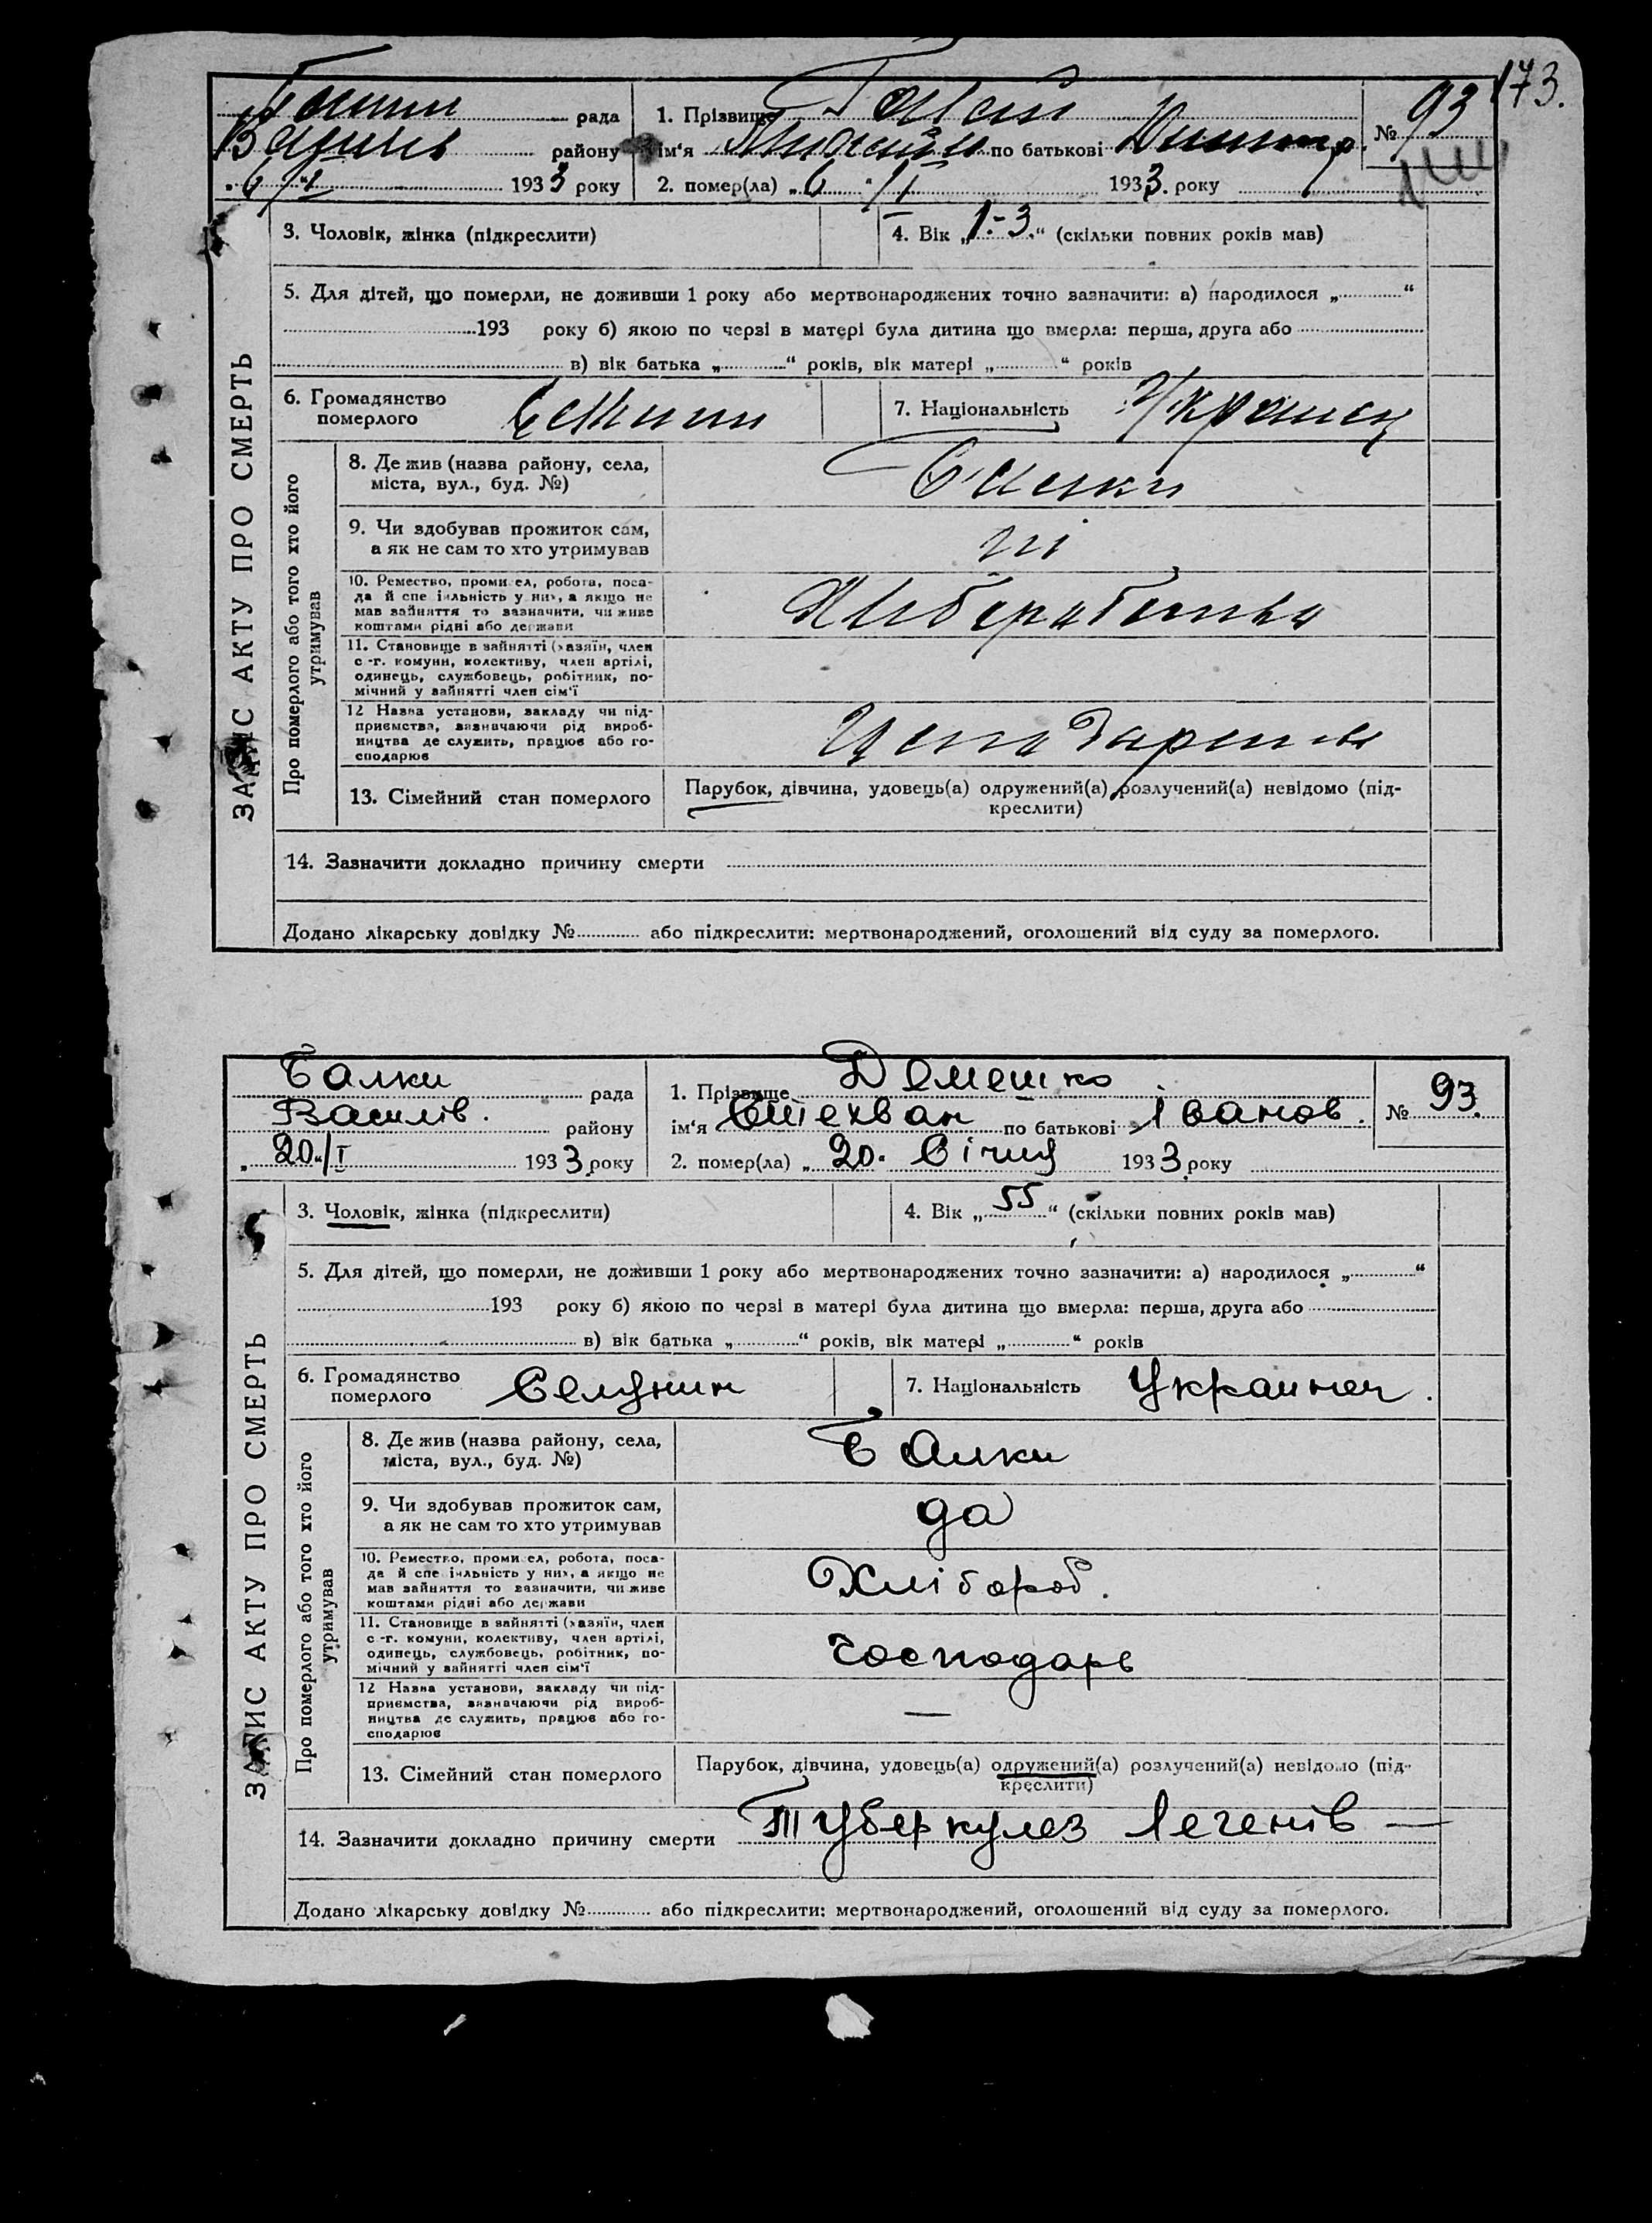 173.
Балки рада
району
6/VI 1933 року
1. Прізвище
ім'я по батькові Дмитр.
№ 93
2. помер(ла) „6 "/VI 1933. року
ЗАПИС АКТУ ПРО СМЕРТЬ
3. Чоловік, жінка (підкреслити)
4. Вік „1.-3." (скільки повних років мав)
5. Для дітей, що померли, не доживши 1 року або мертвонароджених точно зазначити: а) народилося „ "
193 року б) якою по черзі в матері була дитина що вмерла: перша, друга або
в) вік батька „ " років, вік матері „ " років
6. Громадянство
померлого
7. Національність Украинец
Про померлого або того хто його
утримував
8. Де жив (назва району, села,
міста, вул., буд. №)
Балки
9. Чи здобував прожиток сам,
а як не сам то хто утримував
ні
10. Ремество, промисел, робота, поса-
да й спеціяльність у них, а якщо не
мав зайняття то зазначити, чи живе
коштами рідні або держави
11. Становище в зайнятті (хазяїн, член
с.-г. комуни, колективу, член артілі,
одинець, службовець, робітник, по-
мічний у зайнятті член сім'ї
12 Назва установи, закладу чи під-
приємства, зазначаючи рід вироб-
ництва де служить, працює або го-
сподарює
13. Сімейний стан померлого
Парубок, дівчина, удовець(а) одружений(а) розлучений(а) невідомо (під-
креслити)
14. Зазначити докладно причину смерти
Додано лікарську довідку № або підкреслити: мертвонароджений, оголошений від суду за померлого.
Балки рада
Василів. району
„20"/I 1933 року
1. Прізвище Демешко
ім'я Стехван по батькові Іванов.
№ 93.
2. помер(ла) „20. Січня 1933 року
ЗАПИС АКТУ ПРО СМЕРТЬ
3. Чоловік, жінка (підкреслити)
4. Вік „55" (скільки повних років мав)
5. Для дітей, що померли, не доживши 1 року або мертвонароджених точно зазначити: а) народилося „ "
193 року б) якою по черзі в матері була дитина що вмерла: перша, друга або
в) вік батька „ " років, вік матері „ " років
6. Громадянство
померлого
Селянин
7. Національність Украинец.
Про померлого або того хто його
утримував
8. Де жив (назва району, села,
міста, вул., буд. №)
Балки
9. Чи здобував прожиток сам,
а як не сам то хто утримував
да
10. Ремество, промисел, робота, поса-
да й спеціяльність у них, а якщо не
мав зайняття то зазначити, чи живе
коштами рідні або держави
Хлібороб.
11. Становище в зайнятті (хазяїн, член
с.-г. комуни, колективу, член артілі,
одинець, службовець, робітник, по-
мічний у зайнятті член сім'ї
Господарь
12 Назва установи, закладу чи під-
приємства, зазначаючи рід вироб-
ництва де служить, працює або го-
сподарює
—
13. Сімейний стан померлого
Парубок, дівчина, удовець(а) одружений(а) розлучений(а) невідомо (під-
креслити)
14. Зазначити докладно причину смерти Туберкулез легенів —
Додано лікарську довідку № або підкреслити: мертвонароджений, оголошений від суду за померлого.